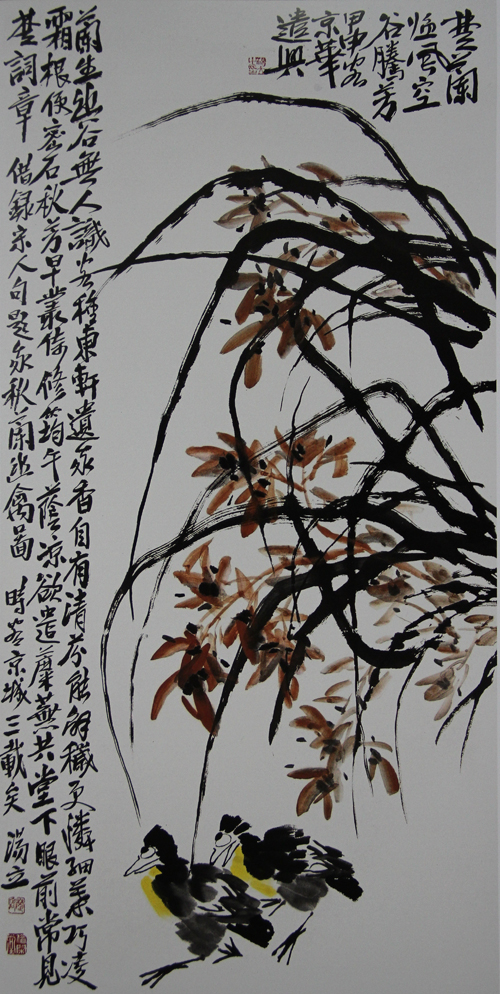 楚蘭
臨風空
谷騰芳
甲申客
京華
遣興
蘭生幽谷無人識客種東軒遺余香自有清芬能解穢更憐細葉巧凌
霜根便密石秋芳早叢倚修筠午蔭涼欲遣蘼蕪共堂下眼前常見
楚詞章 借錄宋人句題余秋蘭幽禽圖 時客京城三載矣 湯立